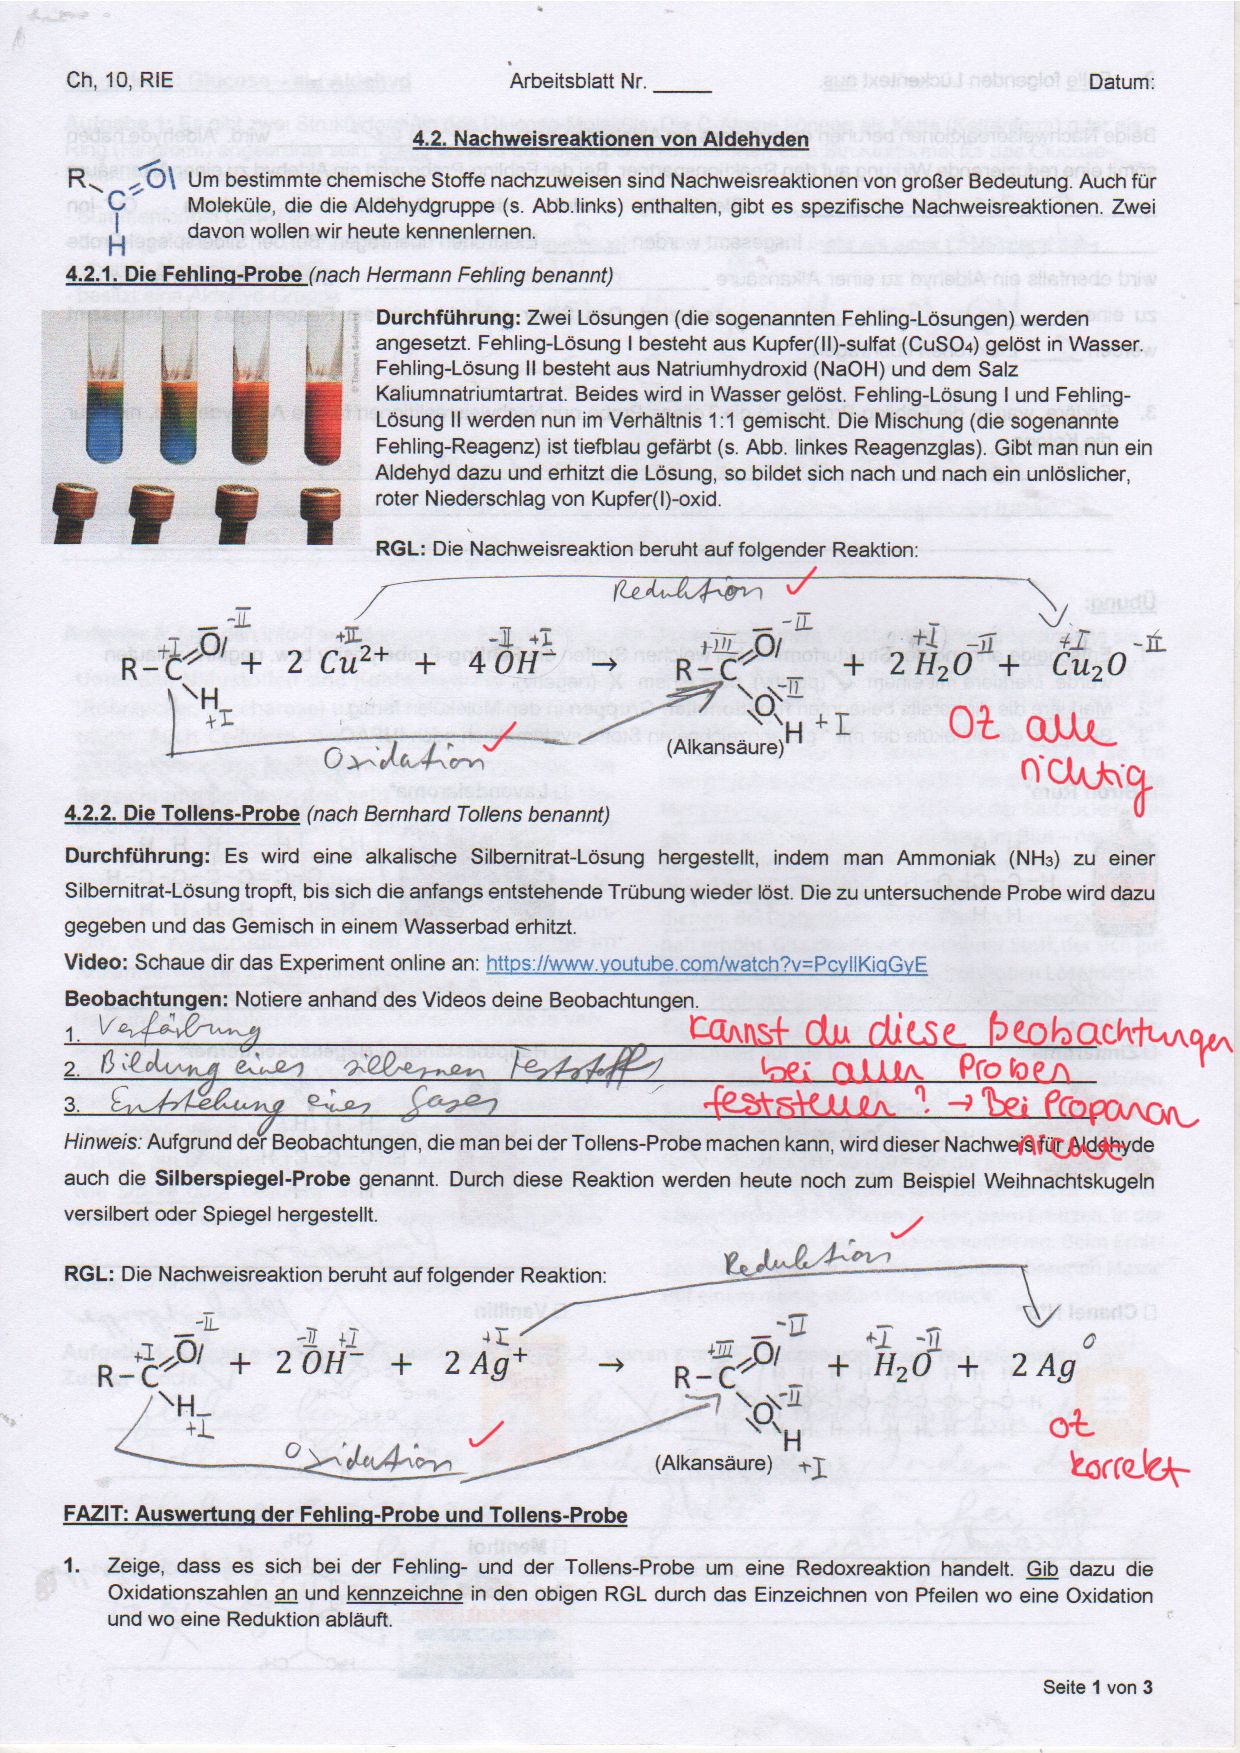 Ch, 10, RIE Arbeitsblatt Nr. _____ Datum:
4.2. Nachweisreaktionen von Aldehyden
R C O H
Um bestimmte chemische Stoffe nachzuweisen sind Nachweisreaktionen von großer Bedeutung. Auch für
Moleküle, die die Aldehydgruppe (s. Abb.links) enthalten, gibt es spezifische Nachweisreaktionen. Zwei
davon wollen wir heute kennenlernen.
4.2.1. Die Fehling-Probe (nach Hermann Fehling benannt)
Durchführung: Zwei Lösungen (die sogenannten Fehling-Lösungen) werden
angesetzt. Fehling-Lösung I besteht aus Kupfer(II)-sulfat (CuSO₄) gelöst in Wasser.
Fehling-Lösung II besteht aus Natriumhydroxid (NaOH) und dem Salz
Kaliumnatriumtartrat. Beides wird in Wasser gelöst. Fehling-Lösung I und Fehling-
Lösung II werden nun im Verhältnis 1:1 gemischt. Die Mischung (die sogenannte
Fehling-Reagenz) ist tiefblau gefärbt (s. Abb. linkes Reagenzglas). Gibt man nun ein
Aldehyd dazu und erhitzt die Lösung, so bildet sich nach und nach ein unlöslicher,
roter Niederschlag von Kupfer(I)-oxid.
RGL: Die Nachweisreaktion beruht auf folgender Reaktion:
Reduktion ✓
-II +II -II +I -II +III +I -II +I -II
R–C O H + 2 Cu²⁺ + 4 OH⁻ → R–C O O H + 2 H₂O + Cu₂O
+I +I -II +I
(Alkansäure)
Oxidation ✓
OZ alle
richtig
4.2.2. Die Tollens-Probe (nach Bernhard Tollens benannt)
Durchführung: Es wird eine alkalische Silbernitrat-Lösung hergestellt, indem man Ammoniak (NH₃) zu einer
Silbernitrat-Lösung tropft, bis sich die anfangs entstehende Trübung wieder löst. Die zu untersuchende Probe wird dazu
gegeben und das Gemisch in einem Wasserbad erhitzt.
Video: Schaue dir das Experiment online an: https://www.youtube.com/watch?v=PcylIKiqGyE
Beobachtungen: Notiere anhand des Videos deine Beobachtungen.
1. Verfärbung
2. Bildung eines silbernen Feststoffs
3. Entstehung eines Gases
Kannst du diese Beobachtungen
bei allen Proben
feststellen? → Bei Propanon
nicht
Hinweis: Aufgrund der Beobachtungen, die man bei der Tollens-Probe machen kann, wird dieser Nachweis für Aldehyde
auch die Silberspiegel-Probe genannt. Durch diese Reaktion werden heute noch zum Beispiel Weihnachtskugeln
versilbert oder Spiegel hergestellt.
Reduktion ✓
RGL: Die Nachweisreaktion beruht auf folgender Reaktion:
-II +I -II +I +I +III -II +I -II 0
R–C O H + 2 OH⁻ + 2 Ag⁺ → R–C O O H + H₂O + 2 Ag
+I -II
(Alkansäure) +I
Oxidation ✓
OZ
korrekt
FAZIT: Auswertung der Fehling-Probe und Tollens-Probe
1. Zeige, dass es sich bei der Fehling- und der Tollens-Probe um eine Redoxreaktion handelt. Gib dazu die
Oxidationszahlen an und kennzeichne in den obigen RGL durch das Einzeichnen von Pfeilen wo eine Oxidation
und wo eine Reduktion abläuft.
Seite 1 von 3